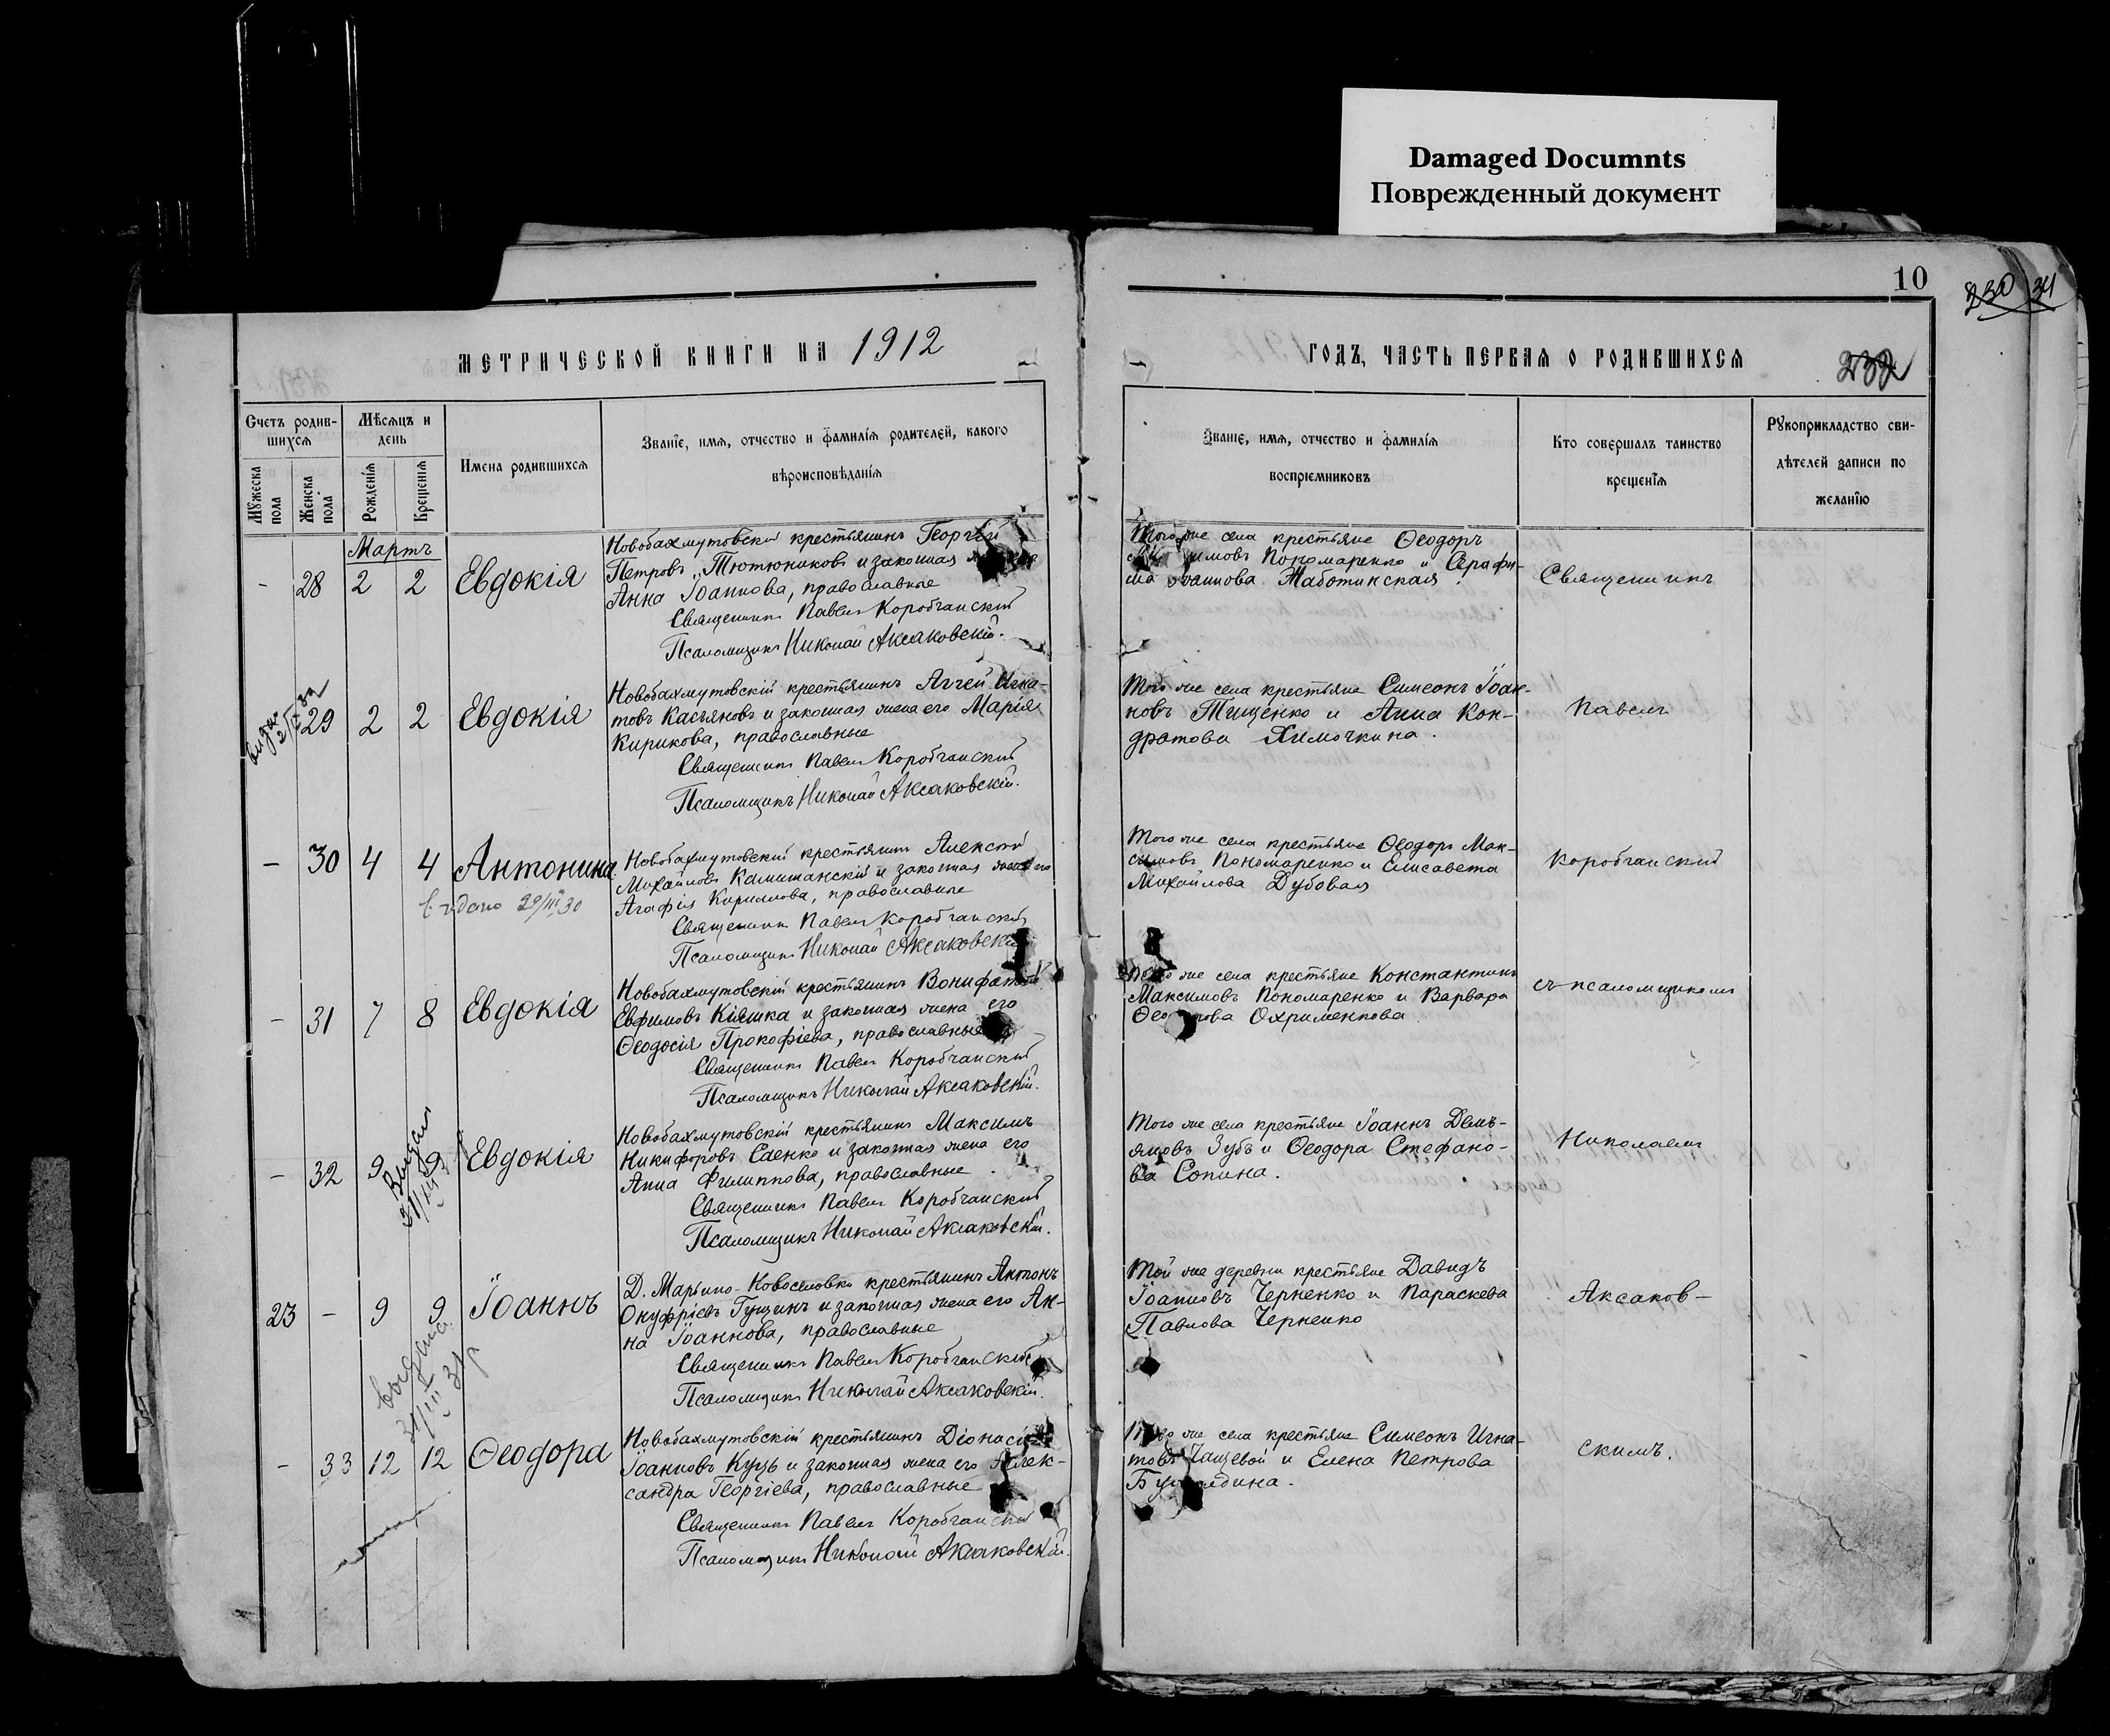 Damaged Documnts
Поврежденный документ
10
230
34
МЕТРИЧЕСКОЙ КНИГИ НА 1912
ГОДЪ, ЧАСТЬ ПЕРВАЯ О РОДИВШИХСЯ
232
Счетъ родив-
шихся
Мѣсяцъ и
день
Мужеска
пола
Женска
пола
Рожденія
Крещенія
Имена родившихся
Званіе, имя, отчество и фамилія родителей, какого
вѣроисповѣданія
Званіе, имя, отчество и фамилія
воспріемниковъ
Кто совершалъ таинство
крещенія
Рукоприкладство сви-
дѣтелей записи по
желанію
Мартъ
- 28 2 2 Евдокія
Новобахмутовскій крестьянинъ Георгій
Петровъ Тютюниковъ и законная
Анна Іоаннова, православные
Священникъ Павелъ Коробчанскій
Псаломщикъ Николай Аксаковскій.
Того же села крестьяне Ѳеодоръ
Пономаренко и Серафи-
ма Іоаннова
Священникъ
29 2 2 Евдокія
Новобахмутовскій крестьянинъ Аггей Игна-
товъ Касьяновъ и законная жена его Марія
Кирикова, православные
Священникъ Павелъ Коробчанскій
Псаломщикъ Николай Аксаковскій.
Того же села крестьяне Симеонъ Іоан-
новъ Тищенко и Анна Кон-
дратова Химочкина.
Павелъ
- 30 4 4 Антонина
Выдано 29/III 30
Новобахмутовскій крестьянинъ Алексѣй
Михайловъ Камышанскій и законная жена его
Агафія Кириллова, православные
Священникъ Павелъ Коробчанскій
Псаломщикъ Николай Аксаковскій
Того же села крестьяне Ѳеодоръ Мак-
симовъ Пономаренко и Елисавета
Михайлова Дубовая
Коробчанскій
- 31 7 8 Евдокія
Новобахмутовскій крестьянинъ Вонифатій
Евфимовъ Кіяшка и законная жена его
Ѳеодосія Прокофіева, православные
Священникъ Павелъ Коробчанскій
Псаломщикъ Николай Аксаковскій.
Того же села крестьяне Константинъ
Максимовъ Пономаренко и Варвара
Охрименкова
съ псаломщикомъ
- 32 9 9 Евдокія
Новобахмутовскій крестьянинъ Максимъ
Никифоровъ Саенко и законная жена его
Анна Филиппова, православные.
Священникъ Павелъ Коробчанскій
Псаломщикъ Николай Аксаковскій.
Того же села крестьяне Іоаннъ Демь-
яновъ Зубъ и Ѳеодора Стефано-
ва Сопина.
Николаемъ
23 - 9 9 Іоаннъ
Д. Марьино-Новоселовки крестьянинъ Антонъ
Онуфріевъ Гущинъ и законная жена его Ан-
на Іоаннова, православные
Священникъ Павелъ Коробчанскій
Псаломщикъ Николай Аксаковскій.
Той же деревни крестьяне Давидъ
Іоанновъ Черненко и Параскева
Павлова Черненко
Аксаков-
- 33 12 12 Ѳеодора
Новобахмутовскій крестьянинъ Діонисій
Іоанновъ Куць и законная жена его Алек-
сандра Георгіева, православные
Священникъ Павелъ Коробчанскій
Псаломщикъ Николай Аксаковскій.
же села крестьяне Симеонъ Игна-
товъ и Елена Петрова
скимъ.